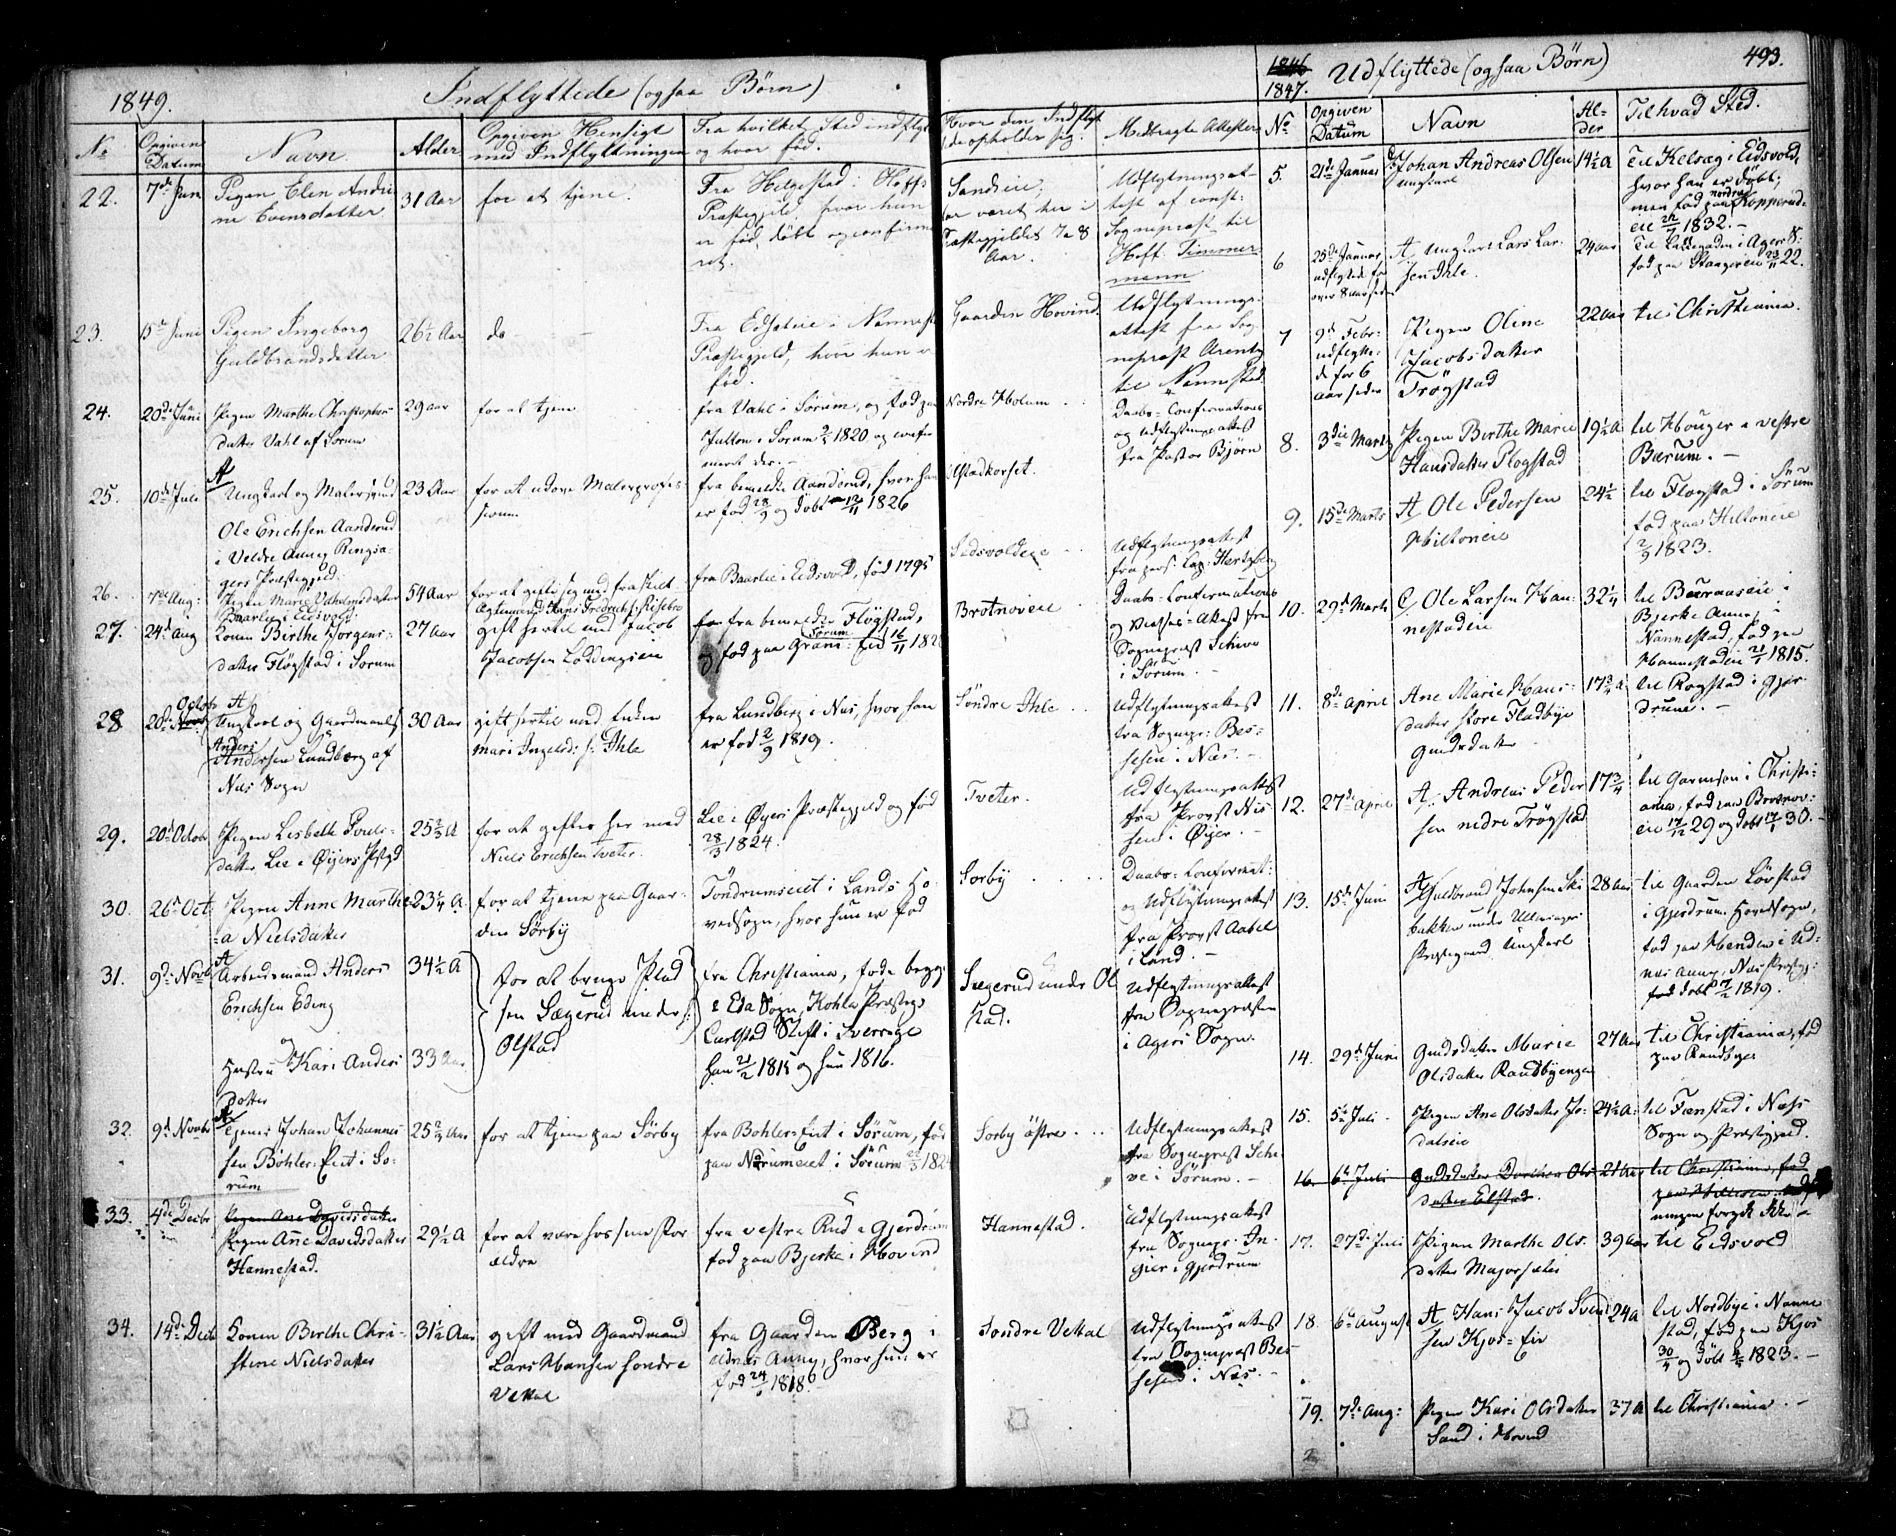 1849.
Indflyttede (ogsaa Børn)
No
Opgiven Datum
Navn.
Alder
Opgiven Hensigt med Indflyttningen
Fra hvilket Sted indflyt og hvor fød.
Hvor den Indflyt opholder sig.
Medbragte Attester
22.
7de Juni
Pigen Elen Andri
ne Evensdatter
31 Aar
for at tjene.
Fra Helgestad i Hoffs
Præstegjeld, hvor hun
er fød, døbt og confirme
ret.
Sandeie,
har været her i
Præstegjeldet 7 a 8
Aar.
Udflytningsat-
test af const:
Sognepræst til
Hoff Timmer-
mann
23.
Juni
Pigen Ingeborg
Guldbrandsdatter
26½ Aar
do
Fra Edsateie i Nannest
Præstegjeld, hvor hun er
fød.
Gaarden Hovind.
Udflytnings-
attest fra Sog
nepræst Arentz
til Nannestad.
24.
20de Juni
Pigen Marthe Christopher-
datter Vahl af Sørum
29 aar
for at tjene
fra Vahl i Sørum, og fød paa
i Sørum 1820 og confir-
meret der. -
Nordre Holum
Daabs- Confirmations
og Udflytningsattest
fra Pastor Bjørn
25.
10de Juli
A
Ungkarl og Malersvend
Ole Erichsen Aanderud
i Veldre Annex Ringsa-
gers Præstegjeld.
23 Aar
for at udøve Malerprofes-
sionen
fra bemeldte Aanderud, hvor han
er fød 28/9 og døbt 12/11 1826
Olstadkorset.
26.
7de Aug:
Pigen Marie Vilhelmsdatter
Baarlie i Eidsvold.
54 Aar
for at gifte sig med fraskilt
Ægtemand Hans Fredrichs: Risebro
fra Baarlie i Eidsvold, fød 1795
Udflytningsattest
fra pers. Cap. Hertzberg
27.
24de Aug
Konen Birthe Jørgens-
datter Fløgstad i Sørum
27 aar
gift hertil med Jacob
Jacobsen Løddingseie
fra bemeldte Fløgstad,
Sørum
og fød paa 16/11
Brotnoveie
Daabs- Confirmations
og Vielses- Attest fra
Sognepræst Schive
i Sørum.
28
Octob
20de
A
Ungkarl og Gaardmand
Anders
Andersen Lundberg af
Næs Sogn
30 Aar
gift hertil med Enken
Mari Ingelsd: s: Ihle
fra Lundberg i Næs, hvor han
er fød 2/9 1819.
Søndre Ihle
Udflytningsattest
fra Sognepr: Bes-
sesen i Næs. -
29.
20de Octob
Pigen Lisbeth Povels-
datter Lie i Øyers Pstgjd
25⅔ A
for at giftes her med
Niels Erichsen Tveter.
Lie i Øyers Præstegjeld og fød
28/3 1824.
Tveter.
Udflytningsattest
fra Provst Nis-
sen i Øyer. -
30.
26de Oct
Pigen Anne Marthe-
a Nielsdatter
23¼ A
for at tjene paa Gaar-
den Sørby
Tøndrumseiet i Lands Ho-
vedsogn, hvor hun er fød
Sørby
Daabs- Confirmat:
og Udflytningsattest
fra Provst Aabel
i Land. -
31.
9de Novb
A
Arbeidsmand Anders
Erichsen Eding
34½ A
Hustru Kari Anders
Datter
33 Aar
for at bruge Plad
sen Sægerud under
Olstad
fra Christiania, føde begge
i Eda Sogn, Kohla Præsteg:
Carlstad Stift i Sverrige
han 21/2 1815 og hun 1816.
Sægerud under Ol
stad.
Udflytningsattest
fra Sognepræsten
i Agers Sogn.
32.
9de Novbr
A
Johan Johannes-
sen Bøhler-Eiet i Sø-
rum
25 Aar
for at tjene paa Sørby
fra Bøhler-Eiet i Sørum, fød
paa i Sørum
Sørby østre
Udflytningsattest
fra Sognepræst Schi-
ve i Sørum. -
33.
4de Decbr
Pigen Ane Davidsdatter
Pigen Anne Davidsdatter
Hannestad.
29½ A
for at være hos sine For
ældre
fra vestre Rud i Gjerdrum
fød paa Bjerke i Hovind
Hannestad.
Udflytningsattest
fra Sognepr: An-
gier i Gjerdrum
34.
14de Decbr
Konen Birthe Chri-
stine Nielsdatter
31½ Aar
gift med Gaardmand
Lars Hansen søndre
Vettal
fra Gaarden Berg i
Udnæs Annex, hvor hun er
fød 1818.
Søndre Vettal
Udflytningsattest
fra Sognepræst Bes-
sesen i Næs. -
1846
1847.
Udflyttede (ogsaa Børn)
493.
No
Opgiven Datum
Navn
Al-
der
Til hvad Sted.
5.
21de Januar
Johan Andreas Olsen
Ungkarl
14½ A
Til Kelsæg i Eidsvold,
hvor han er døbt;
men fød paa nordre Kopperud-
eie 1832. -
6
25de Januar,
udflyttede for
over 8 aar siden
A Ungkarl Lars Lar-
sen Ihle.
24 aar
Til i Agers S:
fød paa 22.
7
9de Febr:
udflytte-
de for 6
aar siden
Pigen Oline
Jacobsdatter
Trøgstad
22 aar
til Christiania.
8.
3die Marts
Pigen Birthe Marie
Hansdatter Plogstad
19½ A
til Houger i vestre
Bærum. -
9.
15de Marts
A Ole Pedersen
Hiltoneie
24½
til Flogstad i Sørum
fød paa Hiltoneie
1823.
10.
29de Marts
Ole Larsen Han-
nestadeie
32¼
til Bjerke Annex i
Nannestad, fød paa
Hannestadeie 1815.
11.
8de April
Ane Marie Hans-
datter store Fladbye
Gmdsdatter
17¾ A
til Rogstad i Gjer-
drum. -
12.
27de April
A. Andreas Peder
sen nedre Trøgstad
17¾
til Garmson i Christi-
ania, fød paa Brotnov-
eie 17/12 29 og døbt 17/1 30. -
13.
15de Juni
A Guldbrand Johnsen Ski
bakken under Ullensager
Præstegaard Ungkarl
28 Aar
til Gaarden Løvstad
i Gjerdrum Hovedsogn,
fød paa Henden i Ud-
næs Annex, Næs Præstegj:
fød døbt 1819.
14.
29de Juni
Gmdsdatter Marie
Olsdatter Randbyengen
27 Aar
til Christiania, fød
paa Randbyen
15.
5te Juli
Pigen Ane Olsdatter Jo-
dalseie
24½ A
til Fenstad i Næss
Sogn og Præstegjeld.
16.
6te Juli
Gmdsdatter Dorthea Ols-
datter Elstad.
21 Aar
til Christiania, fød
paa
ningen foregik ikke. -
17.
27de Juli
Pigen Marthe Ols-
datter Majorsæter
39 Aar
til Eidsvold
18.
6te August
A Hans Jacob Svend
sen Kjos-Eie
24 A
til Nordbye i Nanne
stad, fød paa Kjos
og døbt 1823. -
19.
7de Aug:
Pigen Kari Olsdatter
Sand i Hovind
37 A
til Christiania. -